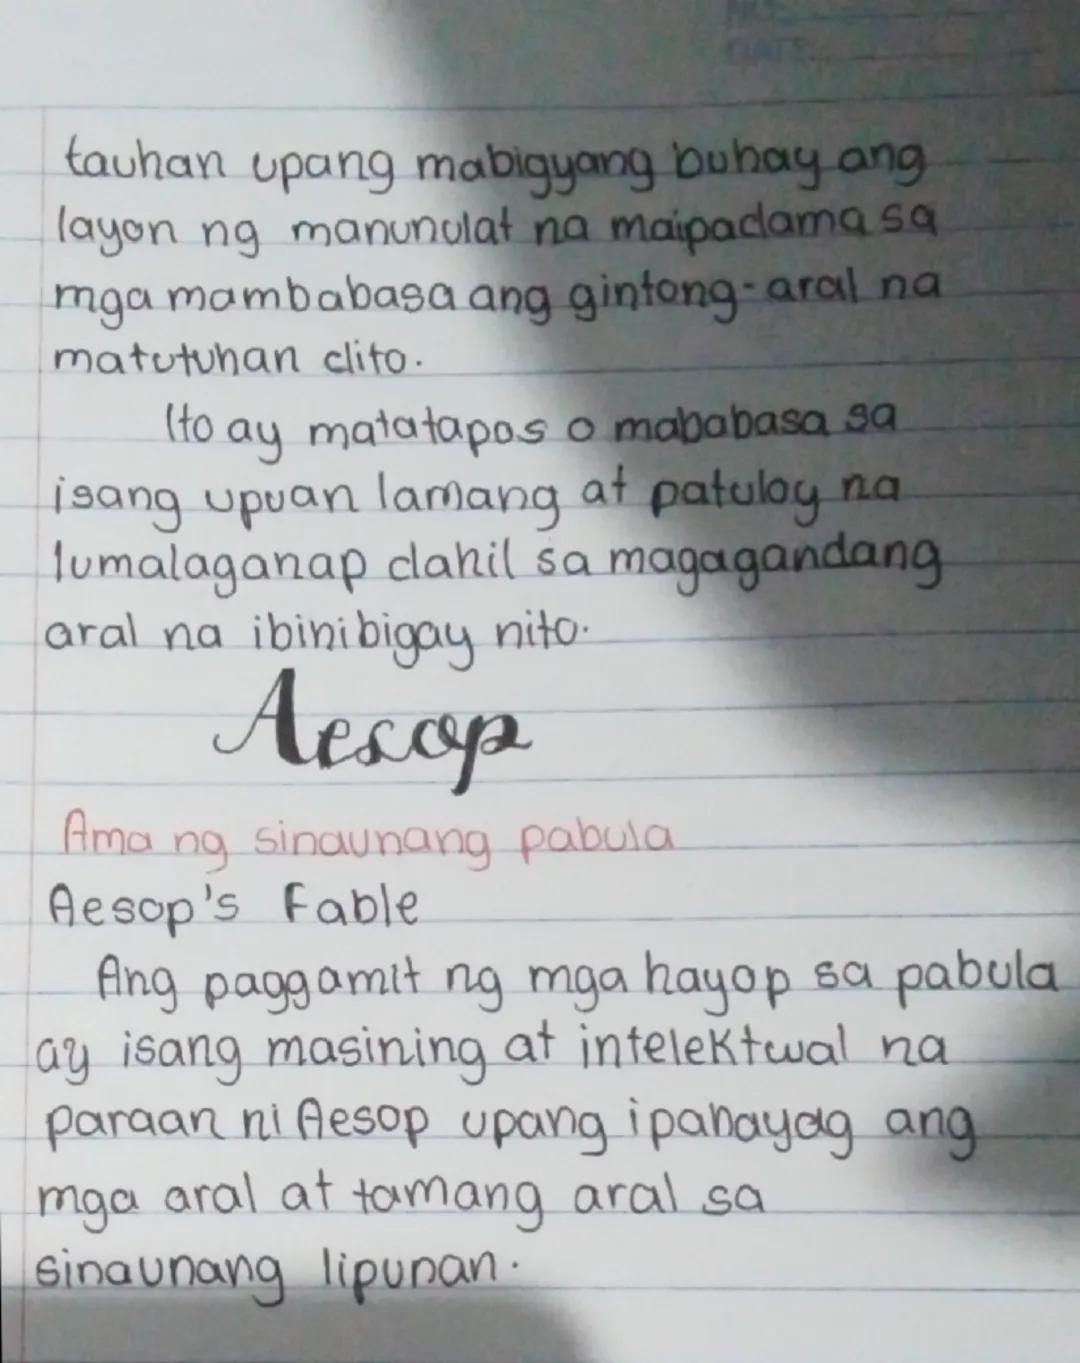 DATE
tauhan upang mabigyang buhay ang
layon ng manunulat na maipadama sa
mga mambabasa ang gintong-aral na
matutuhan dito.
Ito ay matatapos o mababasa sa
isang upuan lamang at patuloy na
lumalaganap dahil sa magagandang
aral na ibinibigay nito.
Aesop
Ama ng sinaunang pabula
Aesop's Fable
Ang paggamit ng mga hayop sa pabula
ay isang masining at intelektwal na
paraan ni Aesop upang ipahayag ang
mga aral at tamang aral sa
sinaunang lipunan.